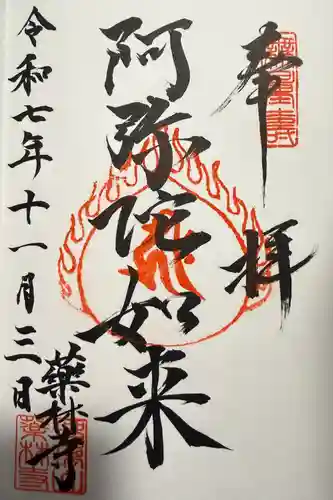 奉拝
阿弥陀如来
令和七年十一月三日
藥林寺